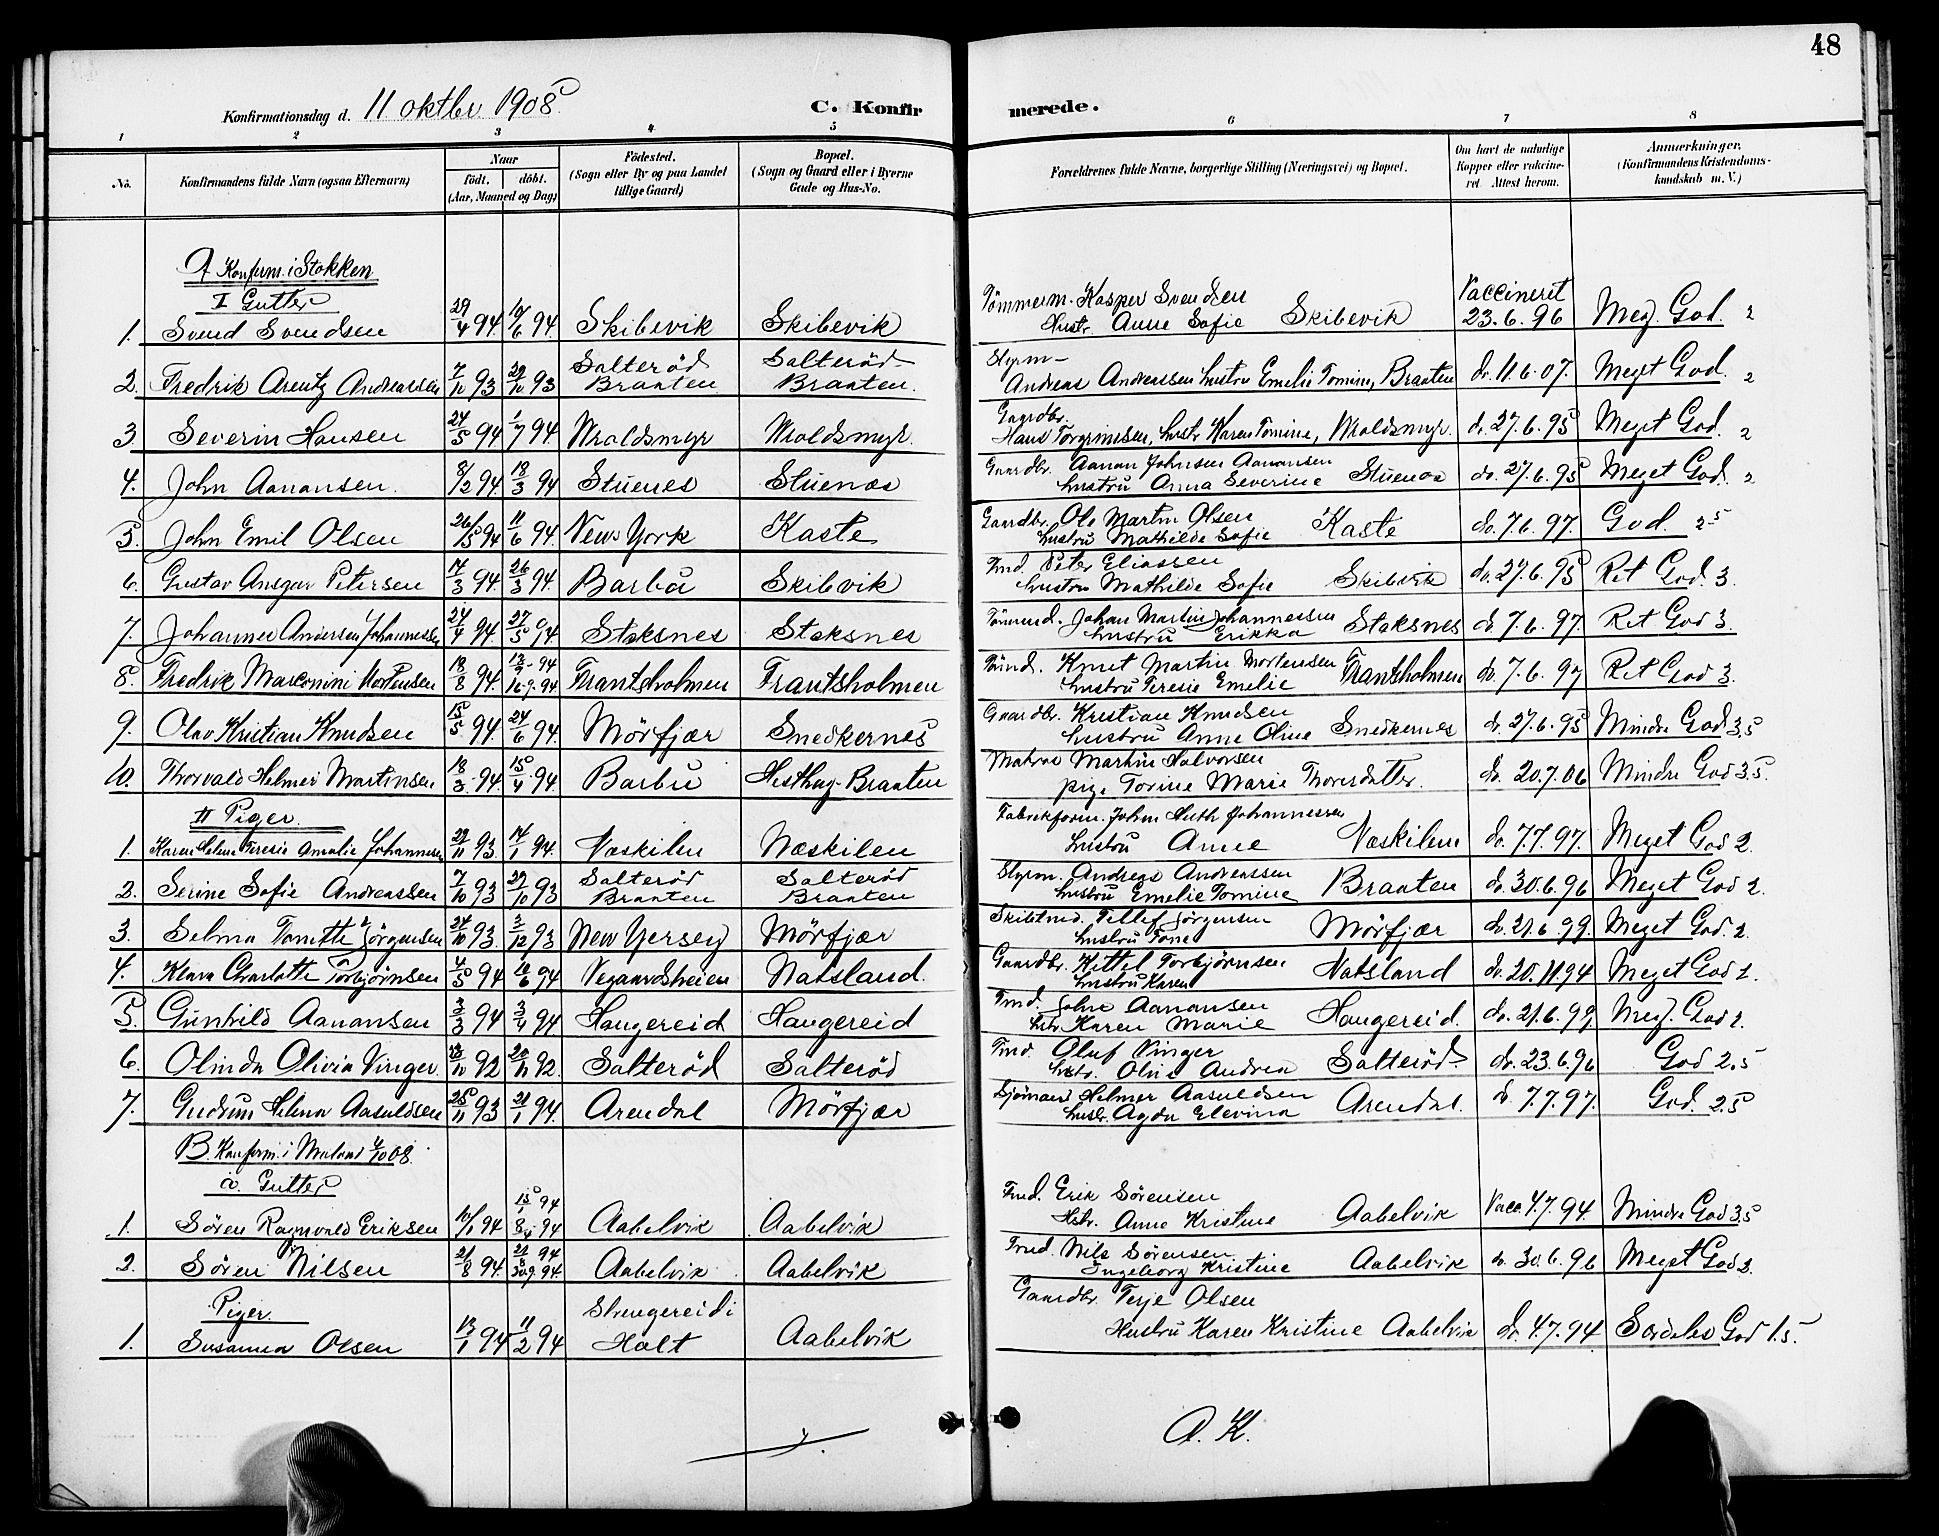 48
Konfirmationsdag d. 11 oktbr. 1908 C. Konfirmerede.
1 2 3 4 5 6 7 8
No. Konfirmandens fulde Navn (ogsaa Efternavn) Naar født. døbt. (Aar, Maaned og Dag) Födested. (Sogn eller By og paa Landet tillige Gaard) Bopæl. (Sogn og Gaard eller i Byerne Gade og Hus-No. Forældrenes fulde Navne, borgerlige Stilling (Næringsvei) og Bopæl. Om havt de naturlige Kopper eller vakcineret. Attest herom. Anmærkninger. (Konfirmandens Kristendomskundskab m. V.)
A Konfirm. i Stokken
I Gutter
1. Svend Svendsen 29/4 94 10/6 94. Skibevik Skibevik Tömmerm. Kasper Svendsen Hustr. Anne Sofie Skibevik Vaccineret 23.6.96 Meg. God. 2
2. Fredrik Arentz Andreassen 7/10 93 29/10 93 Salteröd Braaten Salteröd Braaten. Styrm. Andreas Andreassen hustru Emelie Tomine, Braaten do. 11.6.07. Meget God. 2
3 Severin Hansen 24/5 94 1/7 94 Moldsmyr Moldsmyr. Gaardbr. Hans Torgrimsen, hustr. Karen Tomine, Moldsmyr. do. 27.6.95 Meget God. 2
4. John Aanansen. 8/2 94 18/3 94 Stuenes Stuenes Gaardbr. Aanan Johnsen Aanansen hustru Anna Severine Stuenes do. 27.6.95 Meget God. 2
5. John Emil Olsen 26/5 94 11/6 94. New York Kaste Gaardbr. Ole Martin Olsen hustru Mathilde Sofie Kaste do. 7.6.97. God. 2.5
6. Gustav Ansgar Petersen 17/3 94. 26/3 94. Barbu Skibvik Tmd. Peter Eliassen hustru Mathilde Sofie Skibvik do. 27.6.95 Ret God. 3.
7. Johannes Andersen Johannessen 24/4 94. 27/5 94 Staksnes Staksnes Tömmd. Johan Martin Johannessen hustru Erikka Staksnes do. 7.6.97. Ret God 3.
8. Fredrik Marconini Mortensen 18/8 94. 16.9.94 Frantsholmen Frantsholmen Tömd. Knut Martin Mortensen hustru Teresie Emelie Frantsholmen do. 7.6.97 Ret God 3.
9. Olav Kristian Knudsen 15/5 94. 24/6 94. Mörfjær Snedkernes Gaardbr. Kristian Knudsen hustru Anne Oline Snedkernes do. 27.6.95 Mindre God 3,5
10. Thorvald Helmer Martinsen 18/3 94 15/4 94. Barbu Hesthag-Braaten Matros Martin Halvorsen pige Torine Marie Thorsdatter. do. 20.7.06 Mindre God 3.5.
II Piger.
1. Karen Helene Teresie Amalie Johannessen 29/11 93. 14/1 94. Næskilen Næskilen Fabrikform. John Huth Johannessen hustru Anne Næskilen do. 7.7.97. Meget God 2.
2. Serine Sofie Andreassen 7/10 93 29/10 93 Salteröd Braaten Salteröd Braaten Styrm. Andreas Andreassen hustru Emelie Tomine Braaten do. 30.6.96 Meget God 2.
3. Selma Tonette Jörgensen 24/10 93. 3/12 93 New Yersey Mörfjær Skibstmd. Tellef Jörgensen hustru Tone Mörfjær do. 21.6.99. Meget God. 2.
4. Klara Charlotte Torbjörnsen 4/5 94 10/6 94 Vegaardsheien Natsland. Gaardbr. Kittel Torbjörnsen hustru Karen Natsland do. 20.11.94 Meget God 2.
5. Gunhild Aanansen 3/3 94 3/4 94 Haugereid Haugereid Tmd. John Aanansen hstr. Karen Marie Haugereid. do. 21.6.99. Meg. God 2.
6. Olinda Olivia Vinger. 13/10 92 20/11 92. Salteröd Salteröd Tmd. Oluf Vinger hstr. Oline Andrea Salteröd do. 23.6.96 God 2.5
7. Gudrun Helena Aasuldsen 25/11 93 21/1 94. Arendal Mörfjær Sjömand Helmer Aasuldsen hustr. Agda Elevina Arendal. do. 7.7.97. God. 2.5
B. Konfirm. i Moland 4/10 08.
a. Gutter
1. Sören Ragnvald Eriksen 10/1 94 15/1 94 8/4 94 Aabelvik Aabelvik Tmd. Erik Sörensen Hstr. Anne Kristine Aabelvik Vacc. 4.7.94. Mindre God 3.5
2. Sören Nilsen 21/8 94. 21/8 94 30/9.94. Aabelvik Aabelvik Tmd. Nils Sörensen Ingeborg Kristine Aabelvik do. 30.6.96 Meget God 2.
Piger.
1. Susanna Olsen 13/1 94 11/2 94 Strengereid i Holt Aabelvik Gaardbr. Terje Olsen Hustru Karen Kristine Aabelvik do. 4.7.94 Særdeles God 1.5.
A. K.